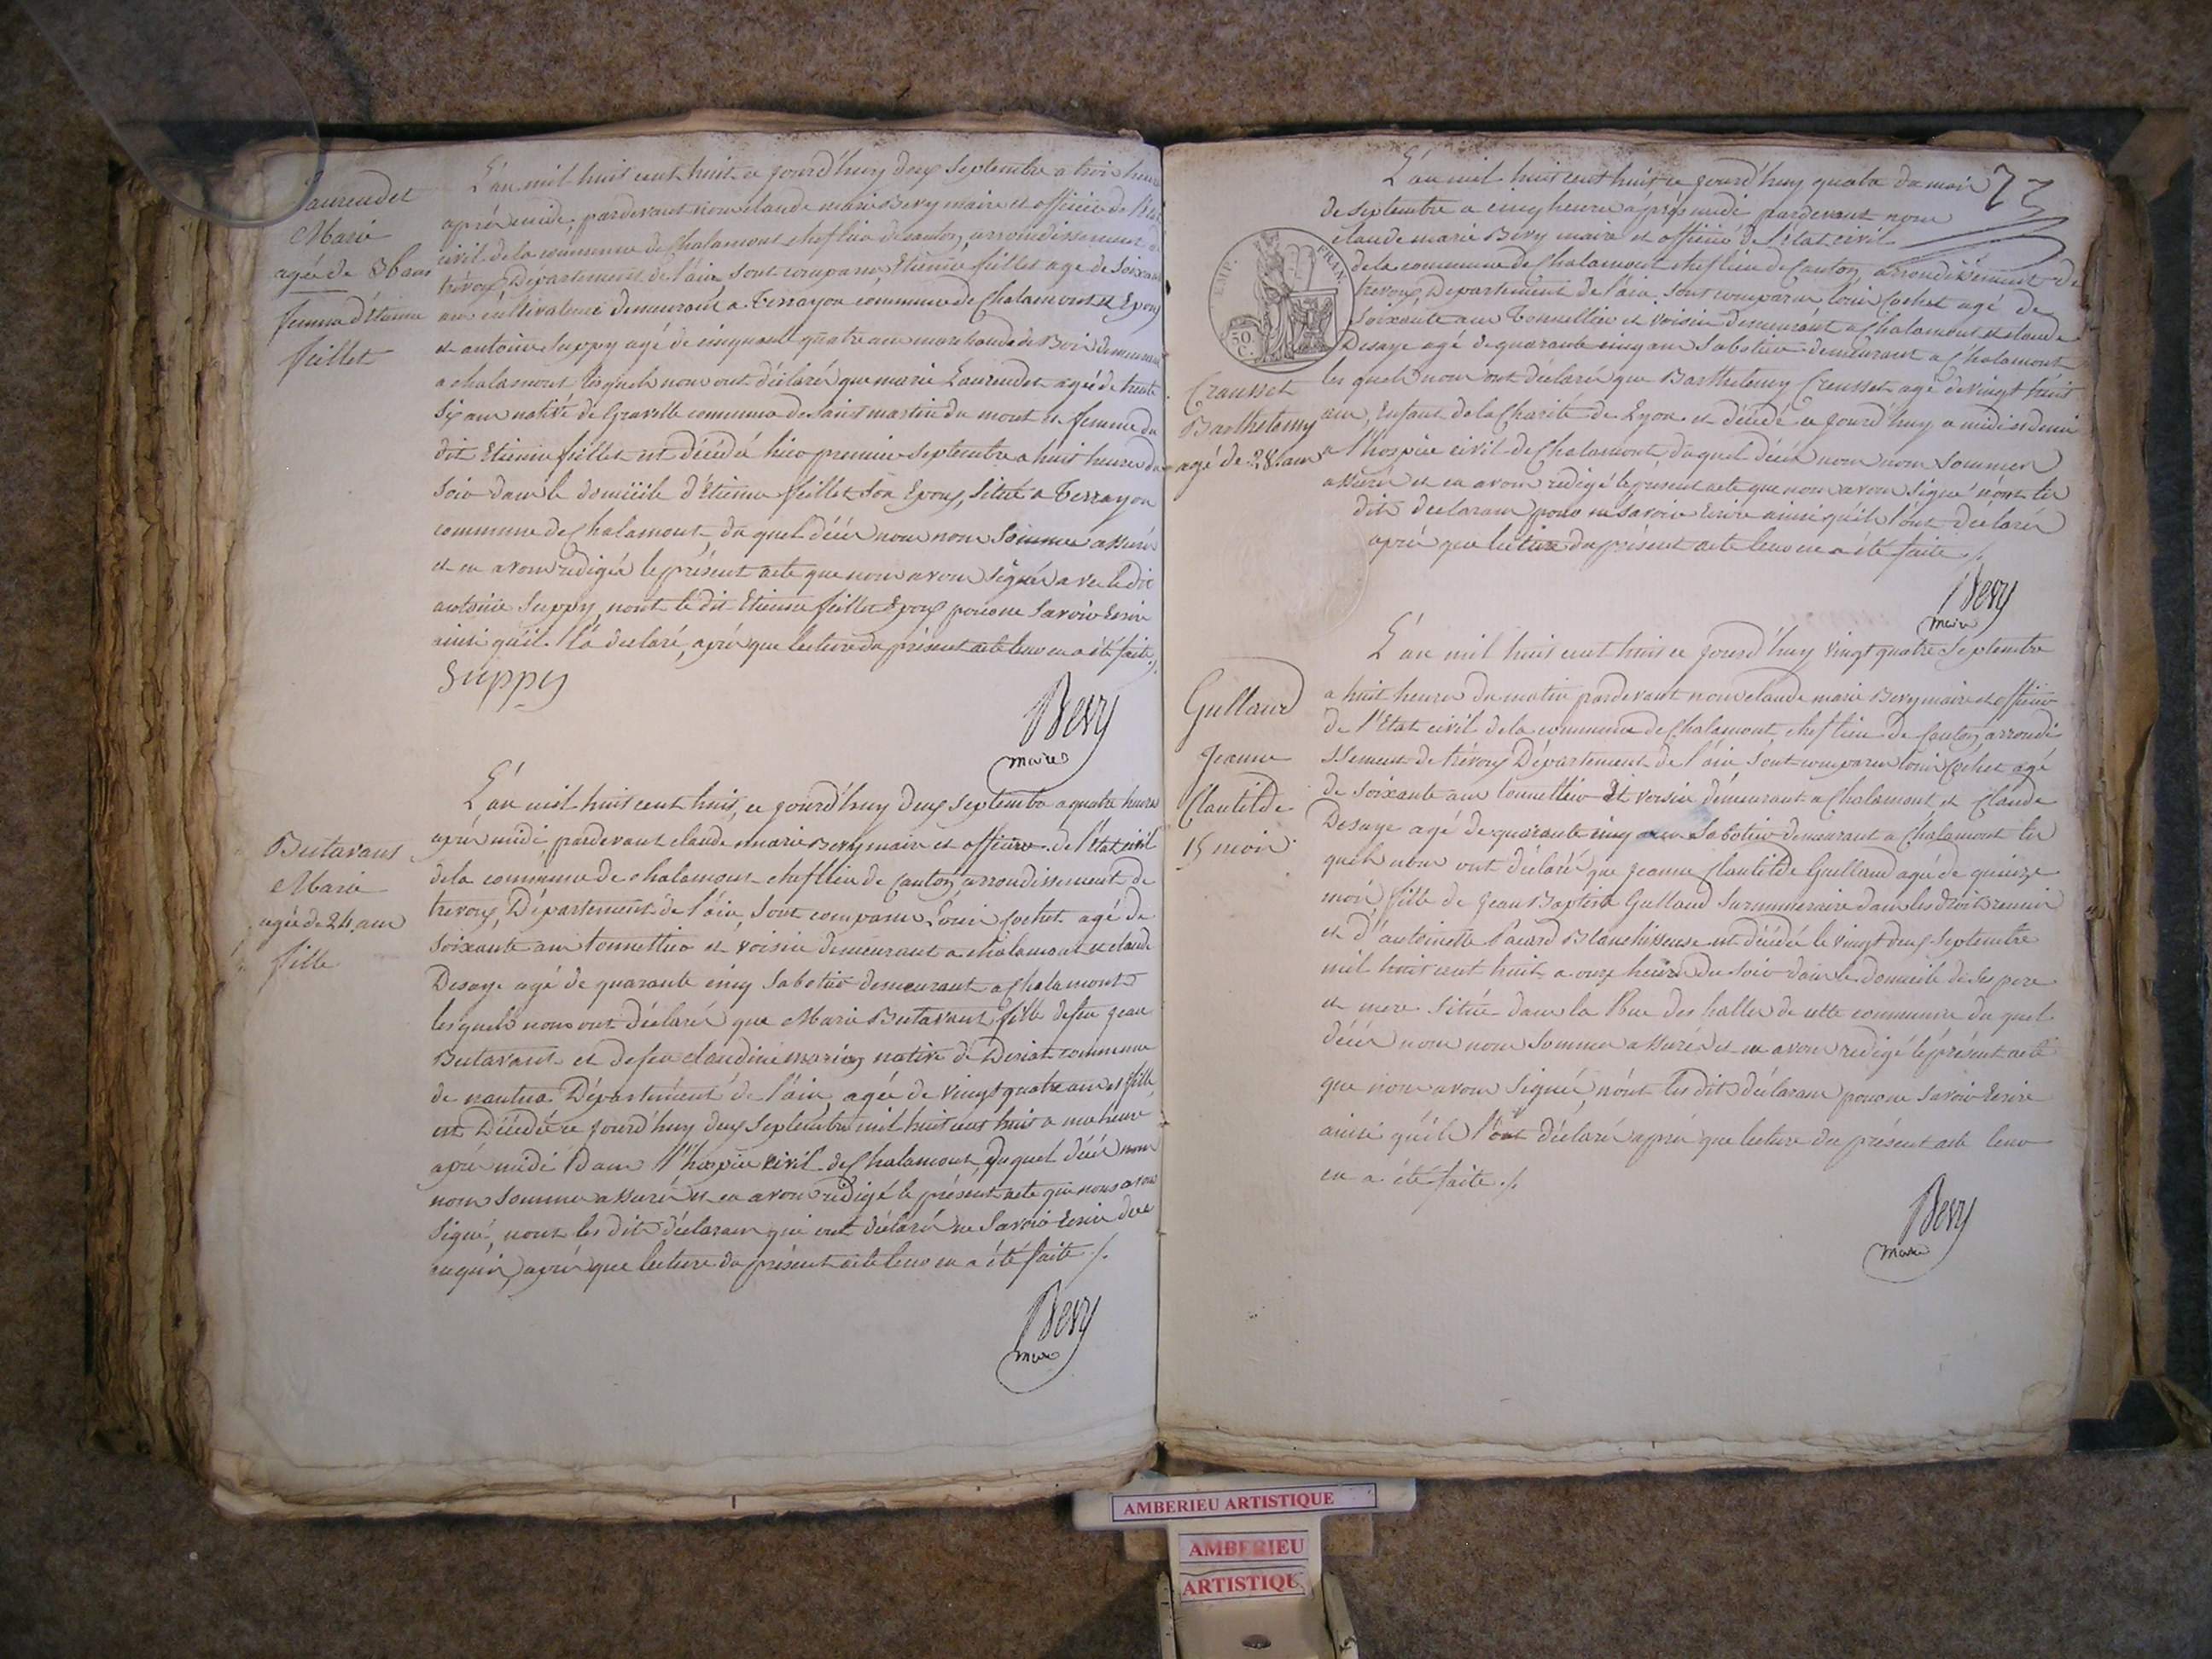 Laurendet
Marie
agée de 36 ans
femme d'Etienne
feillet
L'an mil huit cent huit ce jourd'huy deux Septembre a trois heures
après midi, pardevant nous claude marie Bevy maire et officier de l'état
civil de la commune de Chalamont chef lieu de canton, arrondissement de
trévoux, Département de l'ain, sont comparus, Etienne feillet agé de soixante
ans cultivateur demeurant a Terrayon commune de Chalamont et Epoux
et antoine Suppy agé de cinquante quatre ans marchand de Bois demeurant
a chalamont lesquels nous ont déclaré que marie Laurendet agée de trente
six ans native de Graville commune de saint martin du mont et femme du
dit Etienne feillet est décédé hier premier septembre a huit heures du
soir dans le domicile d'Etienne feillet son Epoux, situé a Terrayon
commune de Chalamont du quel décès nous nous sommes assuré
et en avons rédigé le présent acte que nous avons signé avec le dit
antoine Suppy, nont le dit Etienne feillet Epoux pour ne savoir Ecrire
ainsi qu'il l'a déclaré, après que lecture du présent acte leur en a été faite ./.
Suppy
Bevy
maire
Butavant
Marie
agée de 24 ans
fille
L'an mil huit cent huit, ce jourd'huy deux septembre a quatre heures
après midi, pardevant claude marie Bevy maire et officier de l'état civil
de la commune de chalamont chef lieu de canton, arrondissement de
trevoux, Département de l'ain, sont comparus Louis Cochet agé de
soixante ans tonnellier et voisin demeurant a chalamont et claude
Desaye agé de quarante cinq sabotier demeurant a Chalamont
lesquels nous ont déclaré que Marie Butavant fille de feu jean
Butavant et de feu claudine marion native de Deriat commune
de nantua Département de l'ain, agée de vingt quatre ans et fille
est Décédée ce jourd'huy deux septembre mil huit cent huit a une heure
après midi Dans l'hospice civil de Chalamont, Duquel décès nous
nous sommes assuré et en avons rédigé le présent acte que nous avons
signé, nont les dits déclarans qui ont déclaré ne savoir Ecrire de ce
enquis, après que lecture du présent acte leur en a été faite ./.
Bevy
maire
73
EMP. FRAN.
50 C.
L'an mil huit cent huit ce jourd'huy quatre du mois
de septembre a cinq heures après midi pardevant nous
claude marie Bevy maire et officier de l'état civil
de la commune de Chalamont chef lieu de Canton, arrondissement de
trevoux, Departement de l'ain. sont comparus louis Cochet agé de
soixante ans Tonnellier et voisin demeurant a Chalamont et claude
Desaye agé de quarante cinq ans sabotier demeurant a Chalamont
Crausset
Barthelemy
agé de 28 ans
lesquels nous ont déclaré que Barthelemy Creusset agé de vingt huit
ans, Enfant de la Charité de Lyon est décédé ce jourd'huy a midi et demi
a l'hospice civil de Chalamont, duquel décès nous nous sommes
assuré et en avons rédigé le présent acte que nous avons signé nont les
dits declarans pour ne savoir Ecrire ainsi qu'ils l'ont déclaré
après que lecture du présent acte leur en a été faite ./.
Bevy
maire
Gulland
Jeanne
Clautilde
15 mois
L'an mil huit cent huit ce jourd'huy vingt quatre Septembre
a huit heures du matin pardevant nous claude marie Bevy maire et officier
de l'Etat civil de la commune de Chalamont, chef lieu de Canton, arrondi
ssement de trévoux Département de l'ain, sont comparus louis Cochet agé
de soixante ans tonnellier Et voisin demeurant a Chalamont et Claude
Desaye agé de quarante cinq ans Sabotier demeurant a Chalamont les
quels nous ont déclaré que jeanne Clautilde Guelland agé de quinze
mois fille de Jean Baptiste Gulland Surnumeraire dans les droits reunis
et d'antoinette Pacard Blanchisseuse est décédée le vingt deux Septembre
mil huit cent huit a onze heures du soir dans le domicile de ses pere
et mere située dans la Rue des halles de cette commune du quel
décès nous nous sommes assuré et en avons redigé le présent acte
que nous avons signé, nont les dits déclarans pour ne savoir Ecrire
ainsi qu'ils l'ont déclaré après que lecture du présent acte leur
en a été faite ./.
Bevy
maire
AMBERIEU ARTISTIQUE
AMBERIEU
ARTISTIQUE